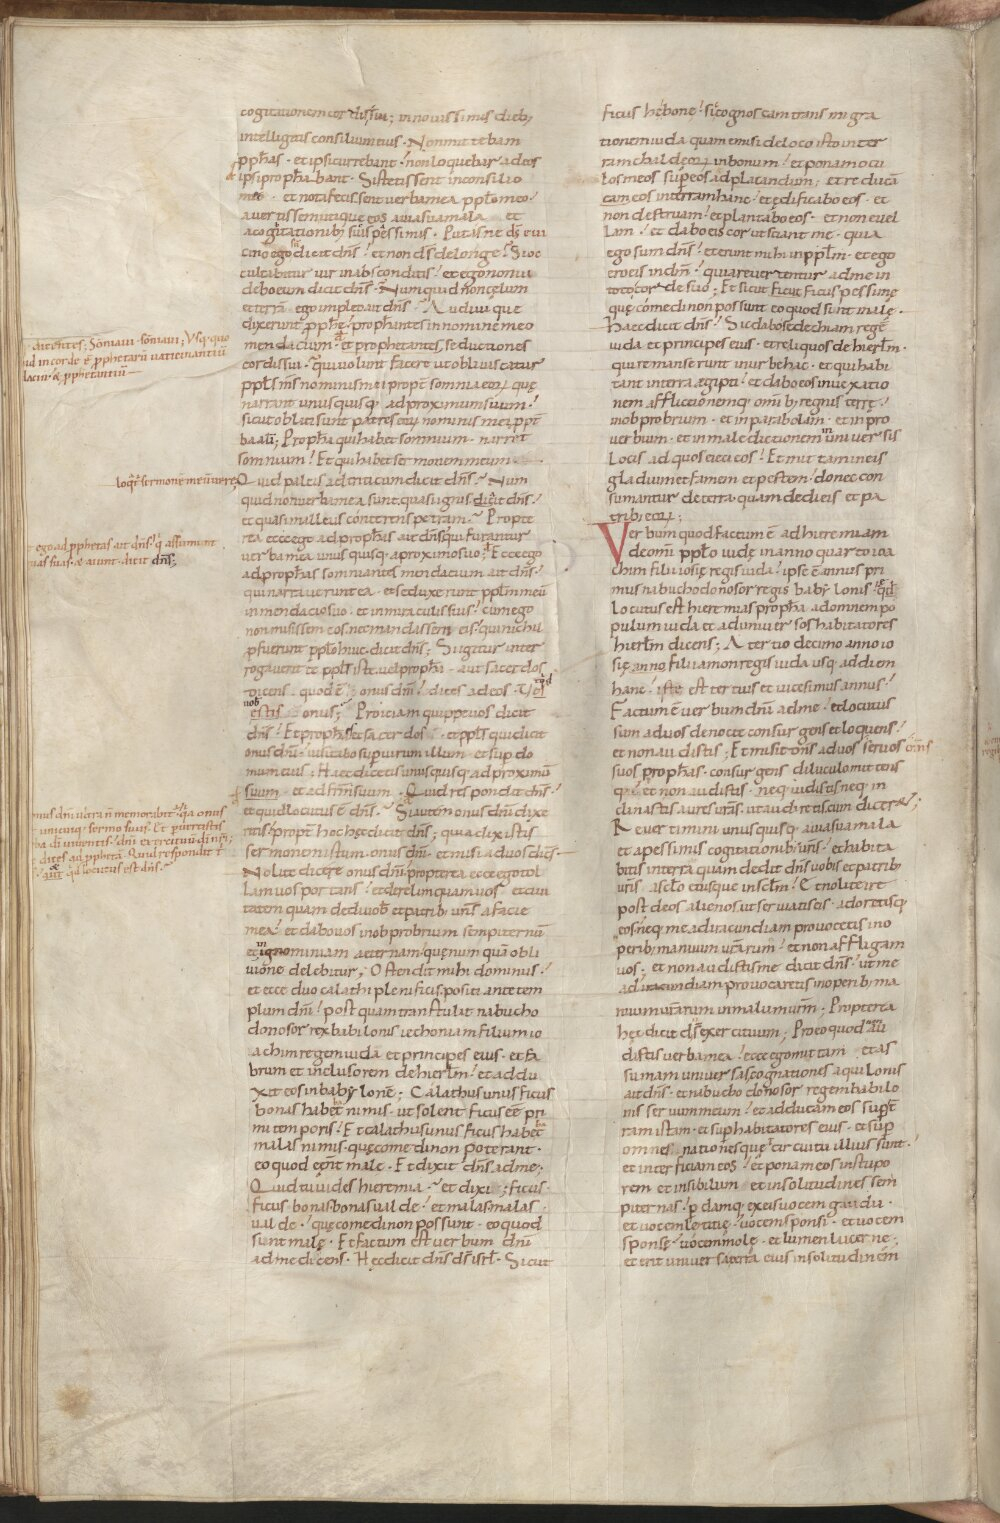 cogitationem cordis sui; in novissimis dieb;
intelligetis consilium eius. Non mittebam
pphas. et ipsi currebant. non loquebar ad eos
et ipsi prophabant. Si stetissent in consilio
meo. et nota fecissent verba mea pplo meo.
avertissem utique eos a via sua mala et
a cogitationib; suis pessimis. Putasne ds e vi
cino ego sum dicit dns. et non ds de longe. Si oc
cultabitur vir in absconditis. et ego non vi
debo eum dicit dns. Numquid non celum
et terra ego impleo ait dns. Audivi que
dixerunt pphe. prophantes in nomine meo
mendacium. et prophetantes seductiones
cordis sui. qui volunt facere ut obliviscatur
ppls ms nominis mei propt somnia eoru que
narrant unusquisq; ad proximum suum.
sicut obliti sunt patres eoru nominis mei ppt
baal; Propha qui habet somnium. narret
somnium. Et qui habet sermonem meum.
Quid paleis ad triticum dicit dns. Num
quid non verba mea sunt quasi ignis dicit dns.
et quasi malleus conterens petram. Propte
rea ecce ego ad prophas ait dns qui furantur
verba mea unusquisq; a proximo suo; Ecce ego
ad prophas somniantes mendacium ait dns.
qui narraverunt ea. et seduxerunt pplm meu
in mendacio suo. et in miraculis suis. cum ego
non misissem eos. nec mandassem eis. qui nichil
pfuerunt pplo huic dicit dns; Si igitur inter
rogaverit te ppls iste. vel propha. aut sacerdos
dicens. quod e onus dni. dices ad eos. Vos
estis onus; Proiciam quippe vos dicit
dns. Et prophas et sacerdos. et ppls qui dicit
onus dni. visitabo sup virum illum. et sup do
mum eius; Hec dicetis unusquisq; ad proximu
suum. et ad frm suum. Quid respondit dns.
et quid locutus e dns. Si autem onus dni dixe
ritis. propt hoc hec dicit dns; quia dixistis
sermonem istum. onus dni. et misi ad vos dicens.
Nolite dicere onus dni. propterea ecce ego tol
lam vos portans. et derelinquam vos et civi
tatem quam dedi vob et patrib; vris a facie
mea. et dabo vos in obprobrium sempiternu
et ignominiam aeternam. que num qua obli
vione delebitur; Ostendit mihi dominus.
et ecce duo calathi pleni ficis. positi ante tem
plum dni. post quam transtulit nabucho
donosor rex babilonis iechoniam filium io
achim regem iuda et principes eius. et fa
brum et inclusorem de hierlm. et addu
xit eos in babylone; Calathus unus ficus
bonas habebat nimis. ut solent ficus ee pri
mi temporis. Et calathus unus ficus habebat
malas nimis. que comedi non poterant.
eo quod eent male. Et dixit dns ad me;
Quid tu vides hieremia. et dixi; ficus.
ficus bonas bonas valde. et malas malas
valde. que comedi non possunt. eo quod
sunt male. Et factum est verbum dni
ad me dicens. Hec dicit dns ds isrl. Sicut
ficus he bone. sic cognoscam transmigra
tionem iuda quam emisi de loco isto in ter
ram chaldeoru in bonum. et ponam ocu
los meos super eos ad placandum; et reducam
eos in terram hanc. et edificabo eos. et
non destruam. et plantabo eos. et non evel
lam. et dabo eis cor ut sciant me. quia
ego sum dns. et erunt mihi in pplm. et ego
ero eis in dm. quia revertentur ad me in
toto corde suo; Et sicut ficus pessime
que comedi non possunt eo quod sint male.
Haec dicit dns. Sic dabo sedechiam rege
iuda et principes eius. et reliquos de hierlm.
qui remanserunt in urbe hac. et qui habi
tant in terra egipti. et dabo eos in vexatio
nem afflictionemq; omnib; regnis terre.
in obprobrium. et in parabolam. et in pro
verbium. et in maledictionem in universis
locis ad quos eieci eos. Et mittam in eis
gladium et famem et pestem. donec con
sumantur de terra. quam dedi eis et pa
trib; eoru;
Verbum quod factum e ad hieremiam
de omi pplo iude in anno quarto ioa
chim filii iosie regis iuda. ipse e annus pri
mus nabuchodonosor regis babylonis. qd
locutus est hieremias propha ad omnem po
pulum iuda et ad universos habitatores
hierlm dicens; A tertio decimo anno io
sie anno filii amon regis iuda usq; ad diem
hanc. iste est tertius et vicesimus annus.
Factum e verbum dni ad me. et locutus
sum ad vos de nocte consurgens et loquens.
et non audistis; Et misit dns ad vos servos omns
suos prophas. consurgens diluculo mittens
q; et non audistis. neq; inclinastis
aures vras ut audiretis cum diceret;
Revertimini unusquisq; a via sua mala
et a pessimis cogitationib; vris. et habita
bitis in terra quam dedit dns vobis et patrib;
vris a sclo et usque in sclm. Et nolite ire
post deos alienos ut serviatis eis. adoretisq;
eos. neq; me ad iracundiam provocetis in o
perib; manuum vrarum. et non affligam
vos; et non audistis me dicit dns. ut me
ad iracundiam provocaretis in operib; ma
nuum vrarum in malum vrm; Propterea
hec dicit dns exercituum; Pro eo quod non au
distis verba mea. ecce ego mittam et as
sumam universas cognationes aquilonis
ait dns. et nabuchodonosor regem babilo
nis servum meum. et adducam eos sup ter
ram istam. et sup habitatores eius. et sup
omnes nationes que in circuitu illius sunt.
et interficiam eos. et ponam eos in stupo
rem et in sibilum et in solitudines sem
piternas. pdamq; ex eis vocem gaudii.
et vocem letitie. vocem sponsi. et vocem
sponse. vocem mole. et lumen lucerne.
et erit universa terra eius in solitudinem
atientes; Somniavi. somniavi; Usq; quo
id in corde e prophetaru vaticinantiu
daciu. & pphetantiu
loqr sermone meu vere
ego ad pphetas ait dns. q assumunt
uas suas. & aiunt. dicit dns;
nus dni ultra n memorabit. qa onus
unicuiq; sermo suus. Et pvertistis
ba di viventis. dni exercituu di nri;
dices ad ppheta. Quid respondit t
& qd locutus est dns.